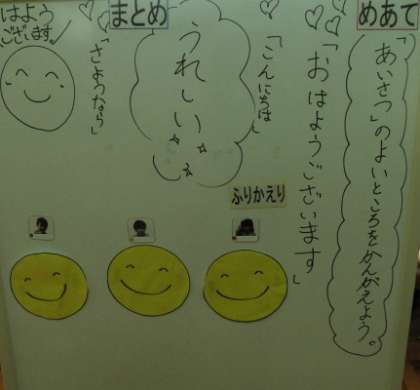 めあて
「あいさつ」のよいところをかんがえよう。
「おはようございます」
「こんにちは」
まとめ
うれしい
「さようなら」
はよう
ございます
ふりかえり